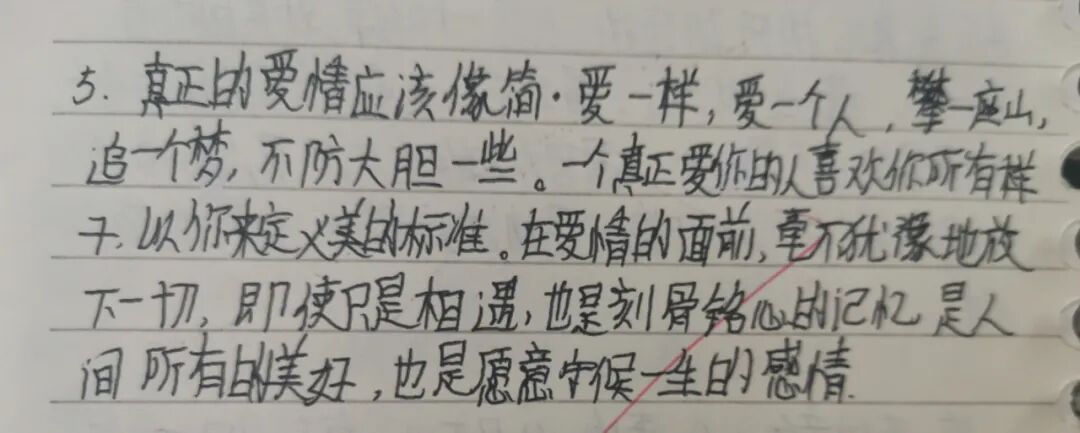 5. 真正的爱情应该像简·爱一样，爱一个人，攀一座山，
追一个梦，不防大胆一些。一个真正爱你的人喜欢你所有样
子，以你来定义美的标准。在爱情的面前，毫不犹豫地放
下一切，即使只是相遇，也是刻骨铭心的记忆是人
间所有的美好，也是愿意守候一生的感情.